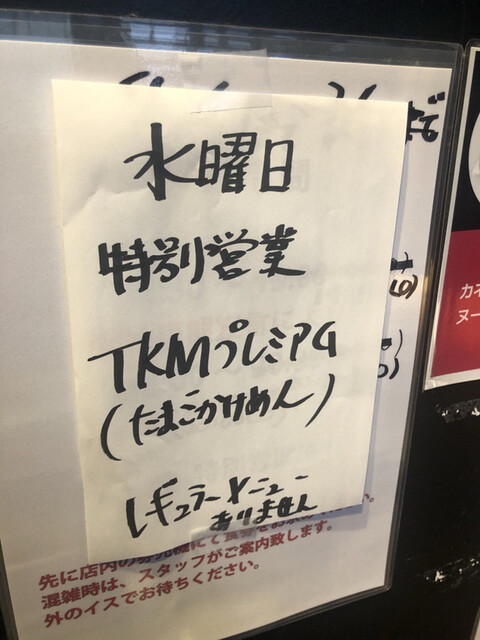 水曜日
特別営業
TKMプレミアム
(たまごかけめん)
レギュラーメニュー
ありません
先に店内の券売機にて食券をお求めください。
混雑時は、スタッフがご案内致します。
外のイスでお待ちください。
カネ
ヌー